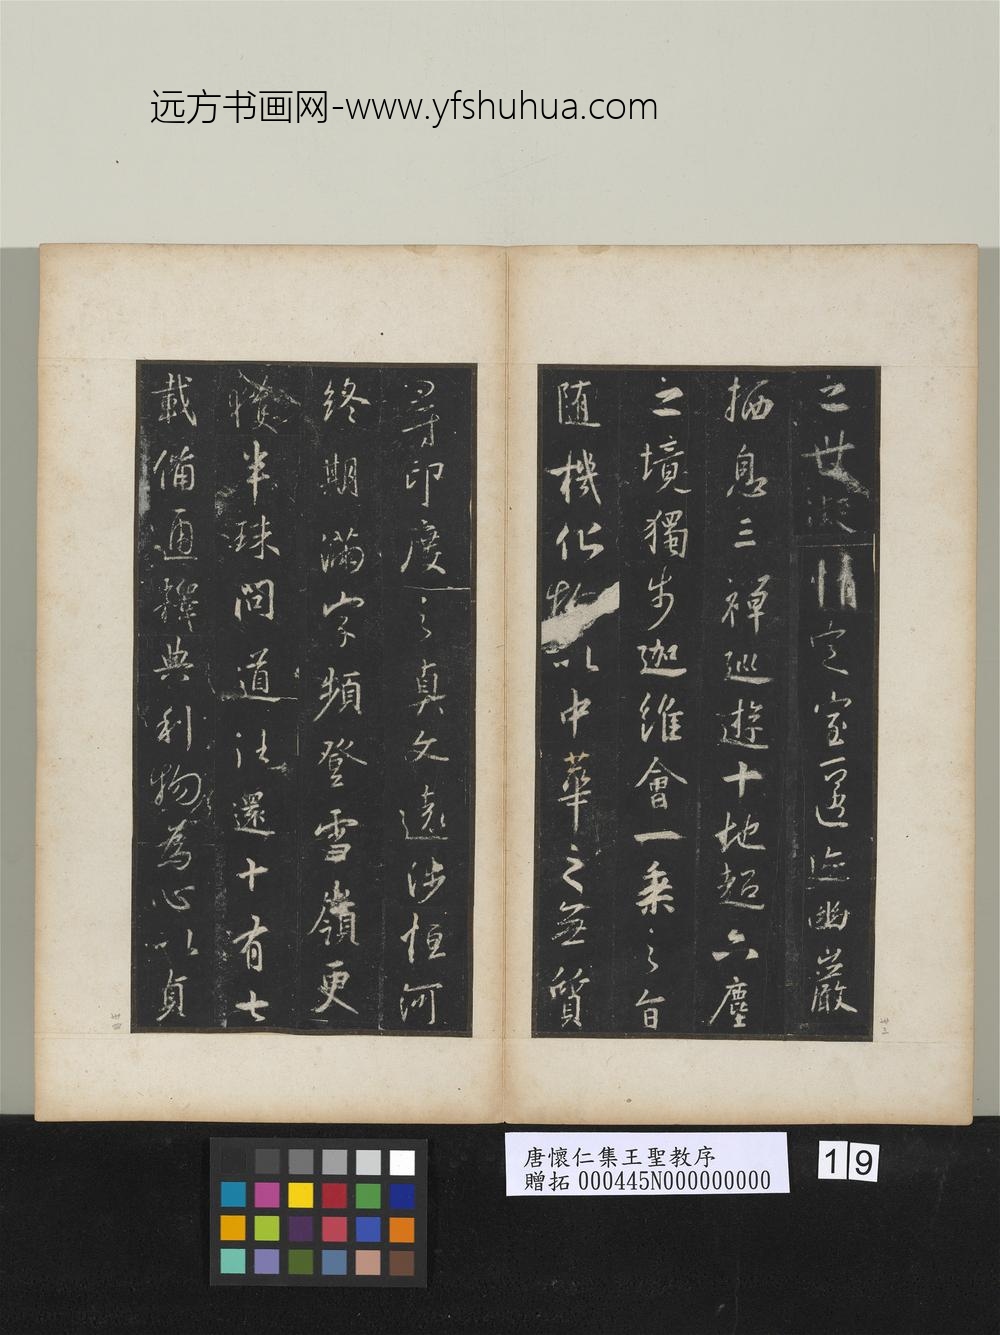 远方书画网-www.yfshuhua.com
之世凝情定室匿迹幽巖
栖息三禅巡遊十地超六塵
之境獨步迦維會一乘之旨
随機化物以中華之無質
尋印度之真文遠涉恒河
終期滿字頻登雪嶺更
獲半珠問道法還十有七
載備通釋典利物為心以貞
卅三
卅四
唐懷仁集王聖教序
贈拓 000445N000000000
19